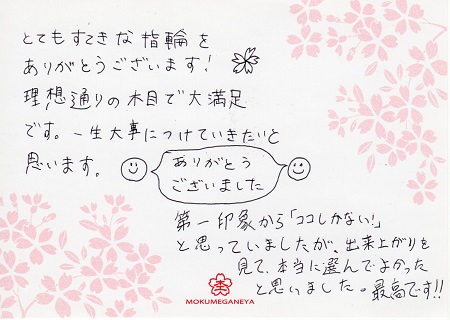 とてもすてきな指輪を
ありがとうございます!
理想通りの木目で大満足
です。一生大事につけていきたいと
思います。
ありがとう
ございました
第一印象から「ココしかない!」
と思っていましたが、出来上がりを
見て、本当に選んでよかった
と思いました。最高です!!
MOKUMEGANEYA